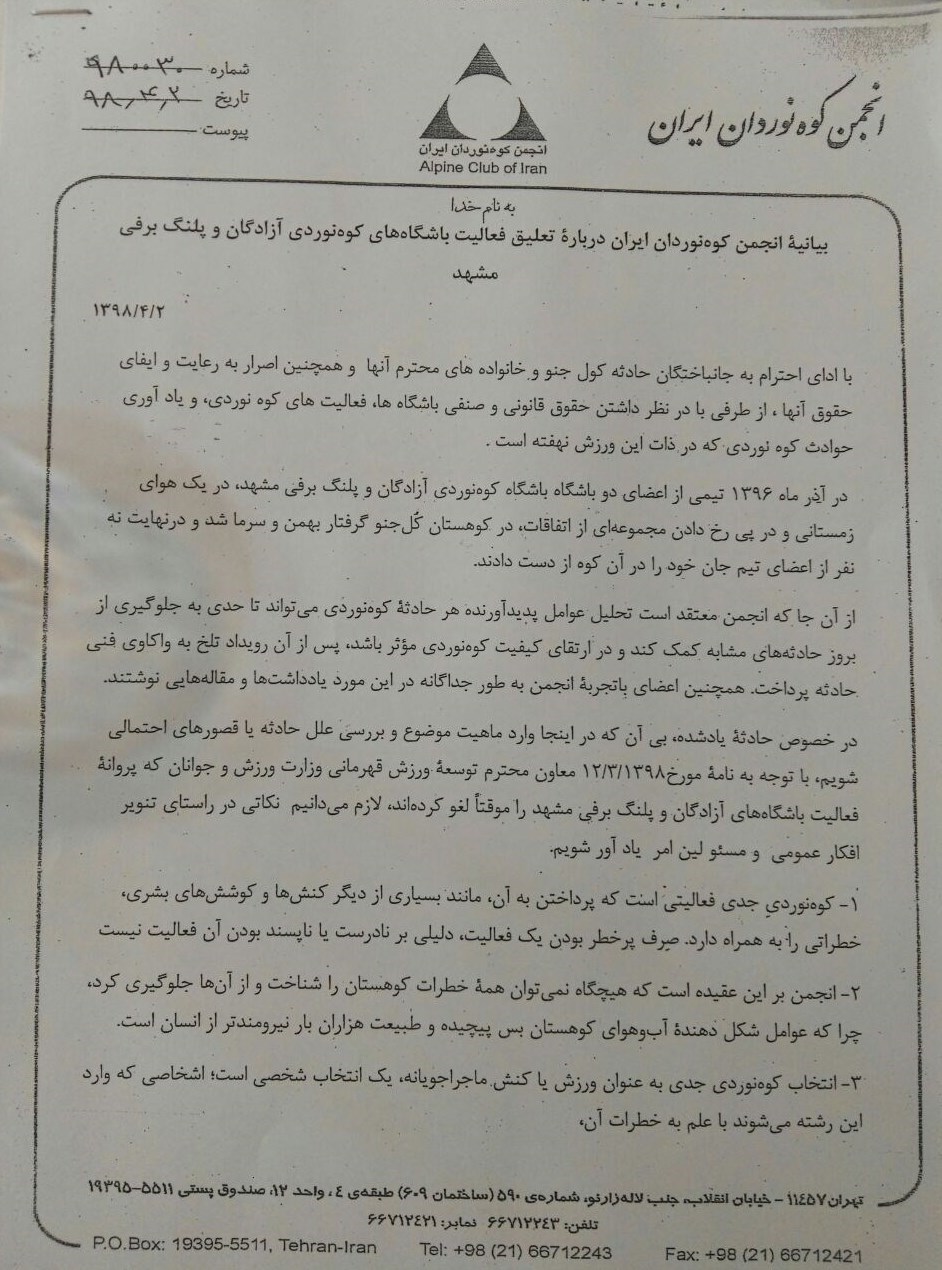 انجمن کوه نوردان ایران
شماره ۹۸۰۰۳۰
تاریخ ۹۸,۴,۲
پیوست
انجمن کوه‌نوردان ایران
Alpine Club of Iran
به نام خدا
بیانیۀ انجمن کوه‌نوردان ایران دربارۀ تعلیق فعالیت باشگاه‌های کوه‌نوردی آزادگان و پلنگ برفی
مشهد
۱۳۹۸/۴/۲
با ادای احترام به جانباختگان حادثه کول جنو و خانواده های محترم آنها و همچنین اصرار به رعایت و ایفای
حقوق آنها ، از طرفی با در نظر داشتن حقوق قانونی و صنفی باشگاه ها، فعالیت های کوه نوردی، و یاد آوری
حوادث کوه نوردی که در ذات این ورزش نهفته است .
در آذر ماه ۱۳۹۶ تیمی از اعضای دو باشگاه باشگاه کوه‌نوردی آزادگان و پلنگ برفی مشهد، در یک هوای
زمستانی و در پی رخ دادن مجموعه‌ای از اتفاقات، در کوهستان کُل‌جنو گرفتار بهمن و سرما شد و درنهایت نه
نفر از اعضای تیم جان خود را در آن کوه از دست دادند.
از آن جا که انجمن معتقد است تحلیل عوامل پدیدآورنده هر حادثۀ کوه‌نوردی می‌تواند تا حدی به جلوگیری از
بروز حادثه‌های مشابه کمک کند و در ارتقای کیفیت کوه‌نوردی مؤثر باشد، پس از آن رویداد تلخ به واکاوی فنی
حادثه پرداخت. همچنین اعضای باتجربۀ انجمن به طور جداگانه در این مورد یادداشت‌ها و مقاله‌هایی نوشتند.
در خصوص حادثۀ یادشده، بی آن که در اینجا وارد ماهیت موضوع و بررسی علل حادثه یا قصورهای احتمالی
شویم، با توجه به نامۀ مورخ۱۲/۳/۱۳۹۸ معاون محترم توسعۀ ورزش قهرمانی وزارت ورزش و جوانان که پروانۀ
فعالیت باشگاه‌های آزادگان و پلنگ برفی مشهد را موقتاً لغو کرده‌اند، لازم می‌دانیم نکاتی در راستای تنویر
افکار عمومی و مسئو لین امر یاد آور شویم.
۱- کوه‌نوردیِ جدی فعالیتی است که پرداختن به آن، مانند بسیاری از دیگر کنش‌ها و کوشش‌های بشری،
خطراتی را به همراه دارد. صِرف پرخطر بودن یک فعالیت، دلیلی بر نادرست یا ناپسند بودن آن فعالیت نیست
۲- انجمن بر این عقیده است که هیچگاه نمی‌توان همۀ خطرات کوهستان را شناخت و از آن‌ها جلوگیری کرد،
چرا که عوامل شکل دهندۀ آب‌وهوای کوهستان بس پیچیده و طبیعت هزاران بار نیرومندتر از انسان است.
۳- انتخاب کوه‌نوردی جدی به عنوان ورزش یا کنش ماجراجویانه، یک انتخاب شخصی است؛ اشخاصی که وارد
این رشته می‌شوند با علم به خطرات آن،
تهران ۱۱۴۵۷ - خیابان انقلاب، جنب لاله‌زارنو، شماره‌ی ۵۹۰ (ساختمان ۶۰۹) طبقه‌ی ۴ ، واحد ۱۲، صندوق پستی ۵۵۱۱-۱۹۳۹۵
تلفن: ۶۶۷۱۲۲۴۳ نمابر: ۶۶۷۱۲۴۲۱
P.O.Box: 19395-5511, Tehran-Iran Tel: +98 (21) 66712243 Fax: +98 (21) 66712421